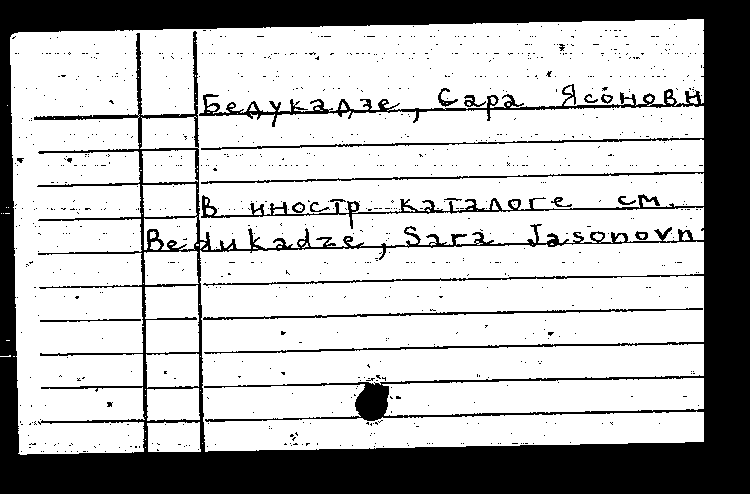 Бедукадзе, Сара Ясоновн
В иностр. каталоге см.
Bedukadze, Sara Jasonovn